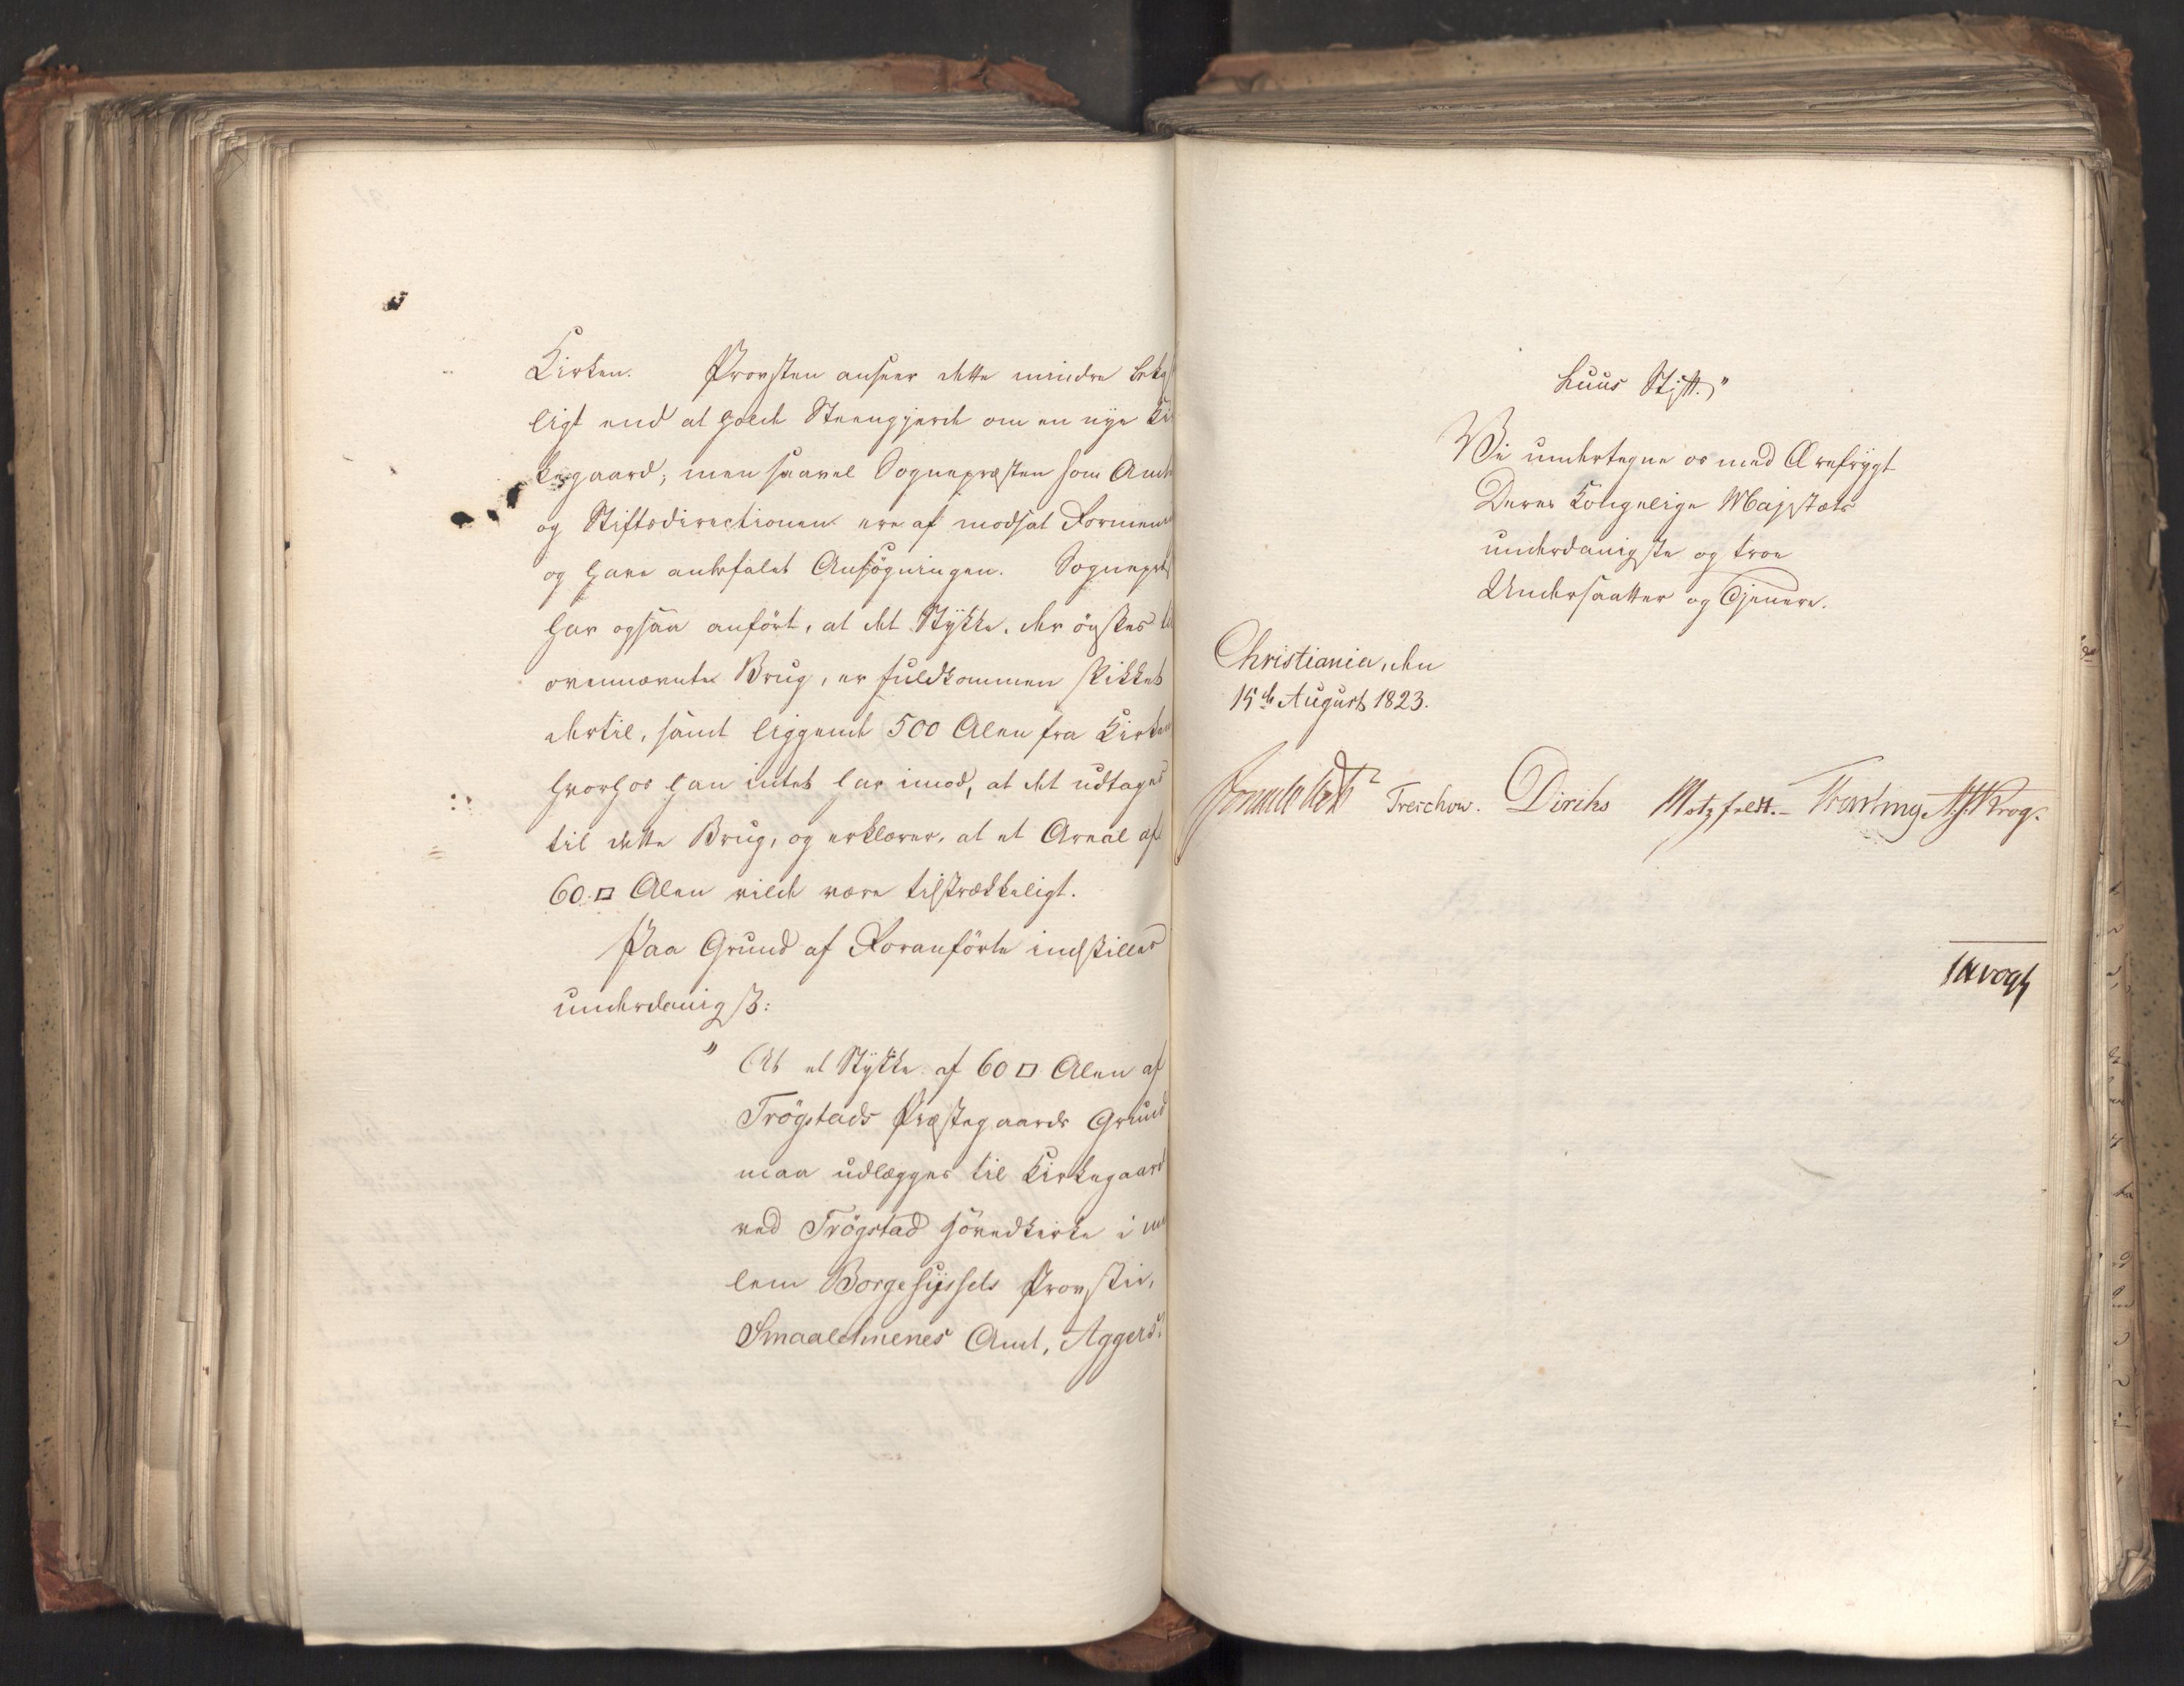 Kirken. Provsten anseer dette mindre beko
ligt end at holde Steengjerde om en nye Ki
kegaard; men saavel Sognepræsten som Amt
og Stiftsdirectionen ere af modsat Formen
og have anbefalet Ansøgningen. Sognepræ
har ogsaa anført, at det Stykke, der ønskes ti
ovennævnte Brug, er fuldkommen skikket
dertil, samt liggende 500 Alen fra Kirken
hvorhos han intet har imod, at det udtages
til dette Brug, og erklærer, at et Areal af
60 □ Alen vilde være tilstrækkeligt.
Paa Grund af Foranførte indstilles
underdanigst:
" At et Stykke af 60 □ Alen af
Trøgstads Præstegaards Grund
maa udlægges til Kirkegaard
ved Trøgstad Hovedkirke i
lem Borgesyssels Provstie,
Smaalehnenes Amt, Aggers-
huus Stift."
Vi undertegne os med Ærefrygt
Deres Kongelige Majestæts
underdanigste og troe
Undersaatter og Tjenere.
Christiania, den
15de August 1823.
Treschow. Diriks Motzfeldt. Krog.
Vogt